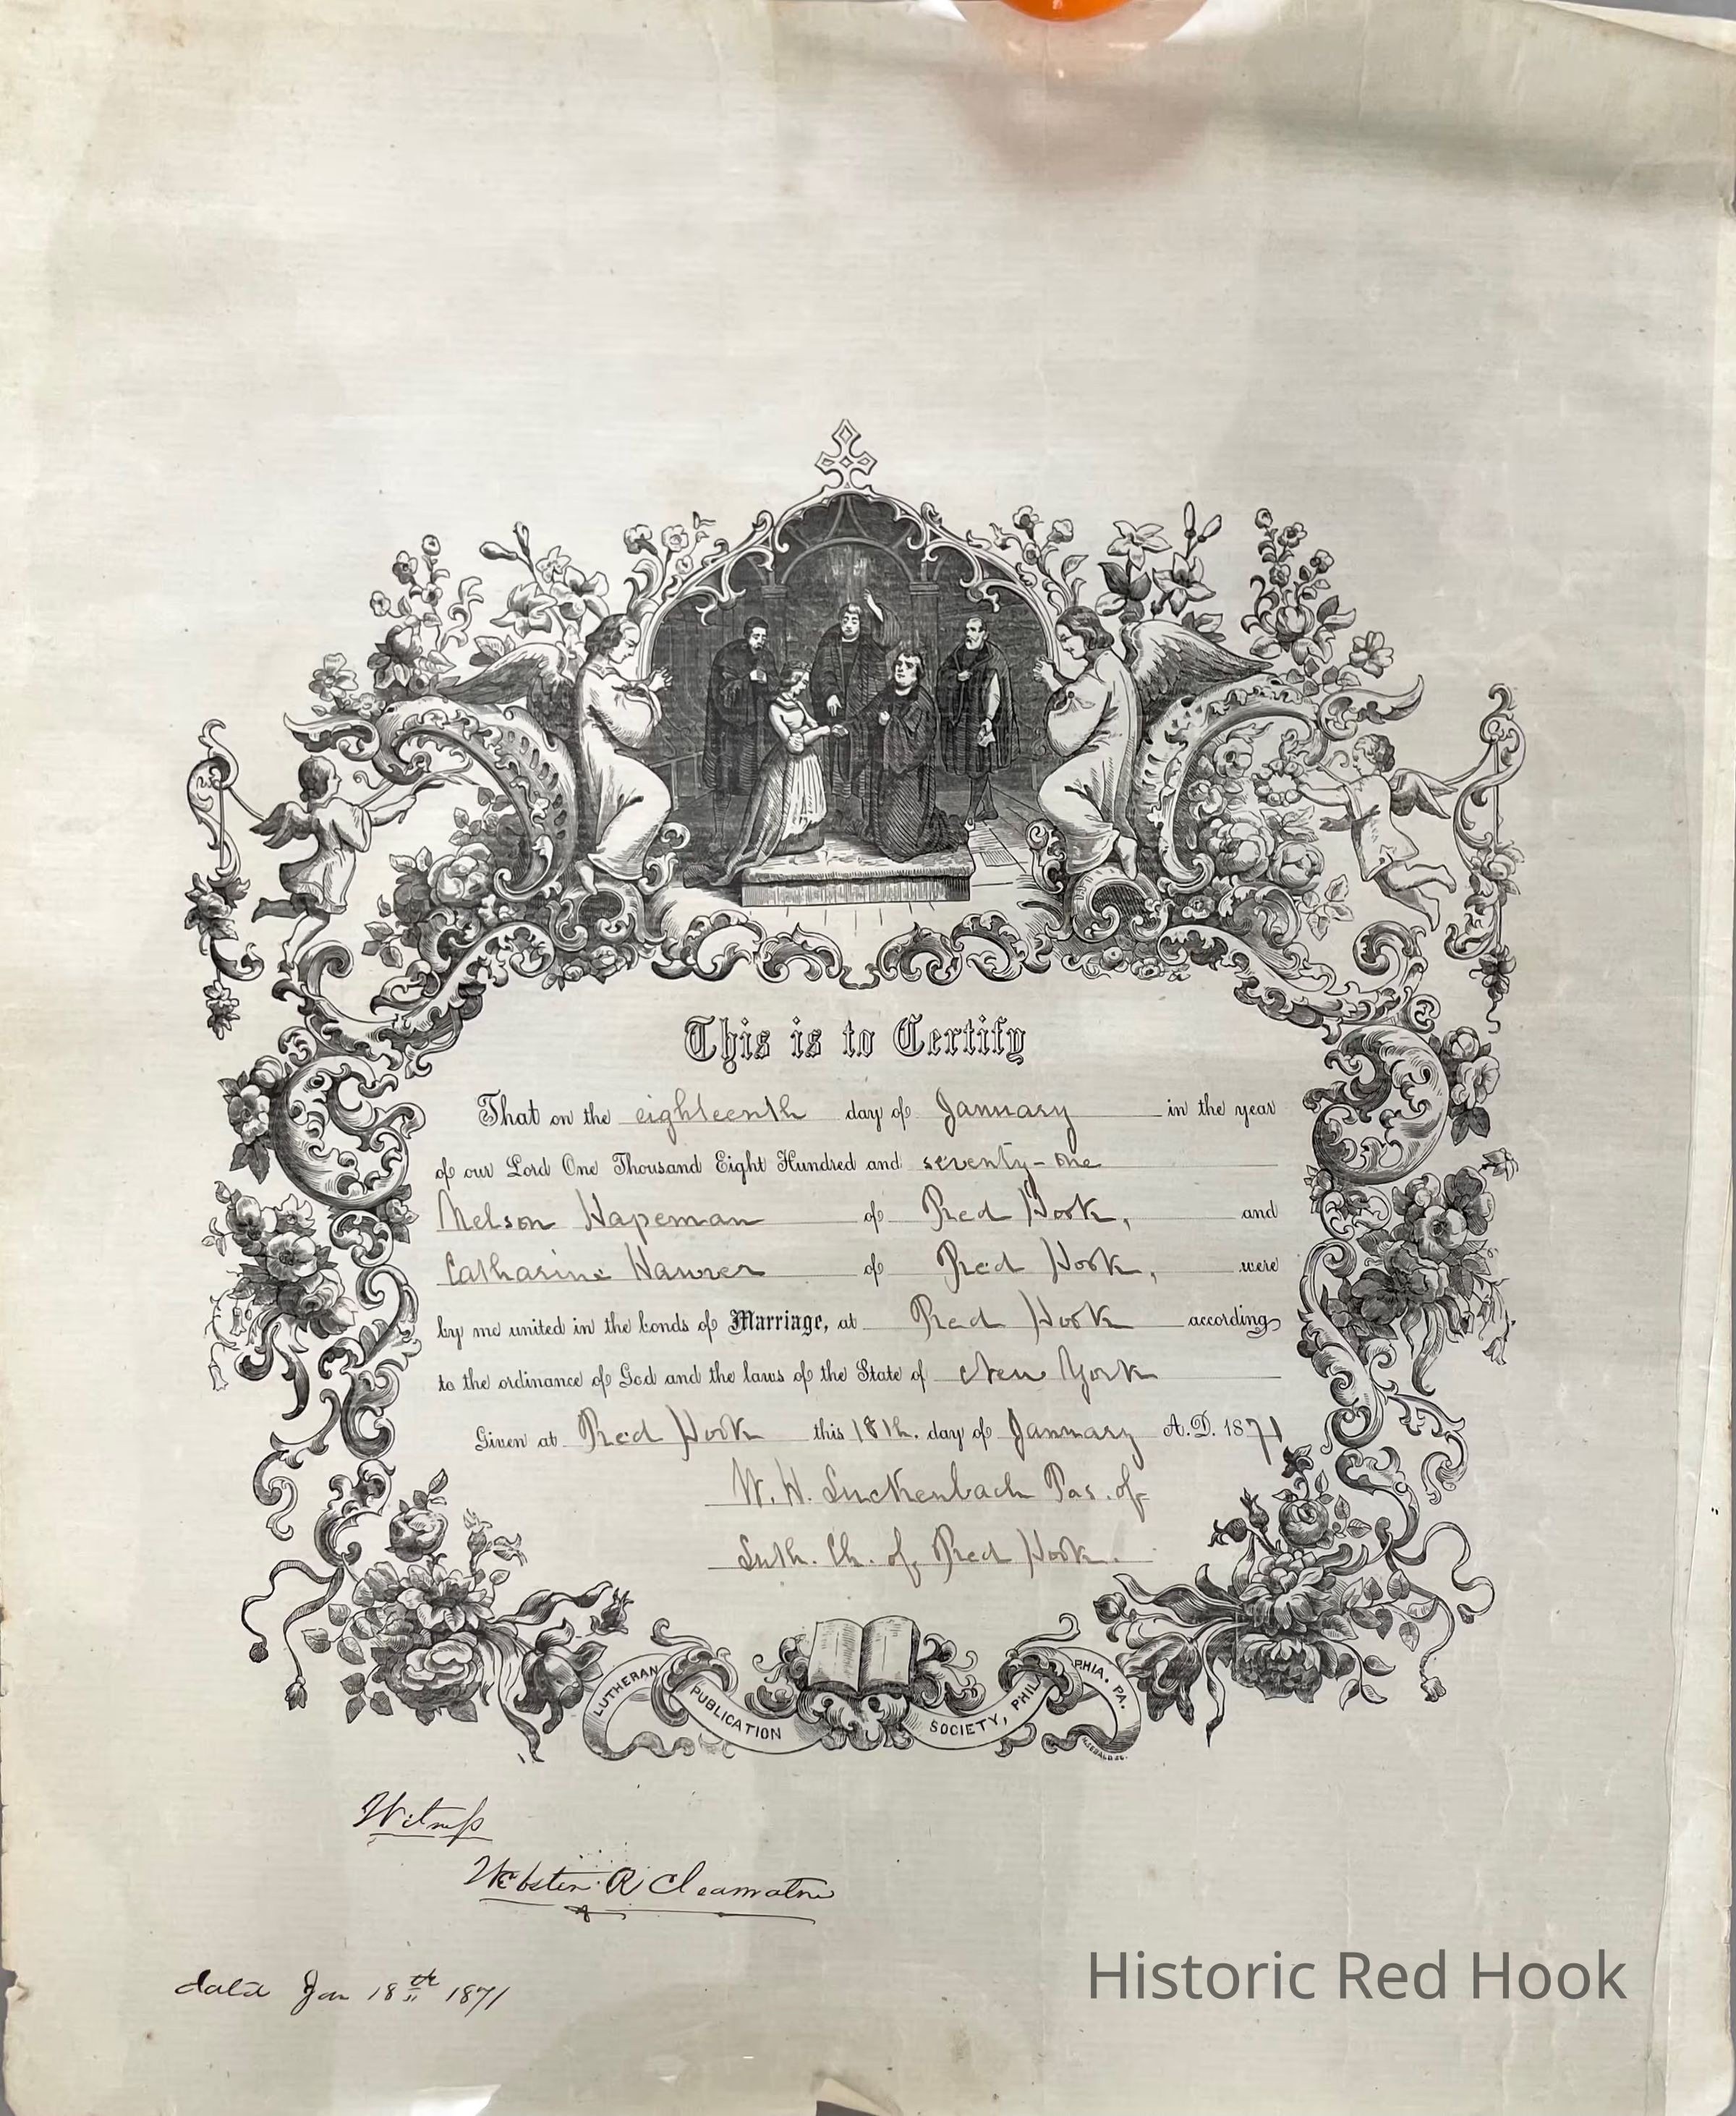 This is to Certify
That on the eighteenth day of January in the year
of our Lord One Thousand Eight Hundred and seventy-one
Nelson Hapeman of Red Hook, and
Catharine Hawver of Red Hook, were
by me united in the bonds of Marriage, at Red Hook according
to the ordinance of God and the laws of the State of New York
Given at Red Hook this 18th. day of January A.D. 1871
W. H. Luckenbach Pas. of
Luth. Ch. of Red Hook.
LUTHERAN PUBLICATION SOCIETY, PHILADELPHIA, PA.
Witness
Webster R Cleamatn
date Jan 18th 1871
Historic Red Hook